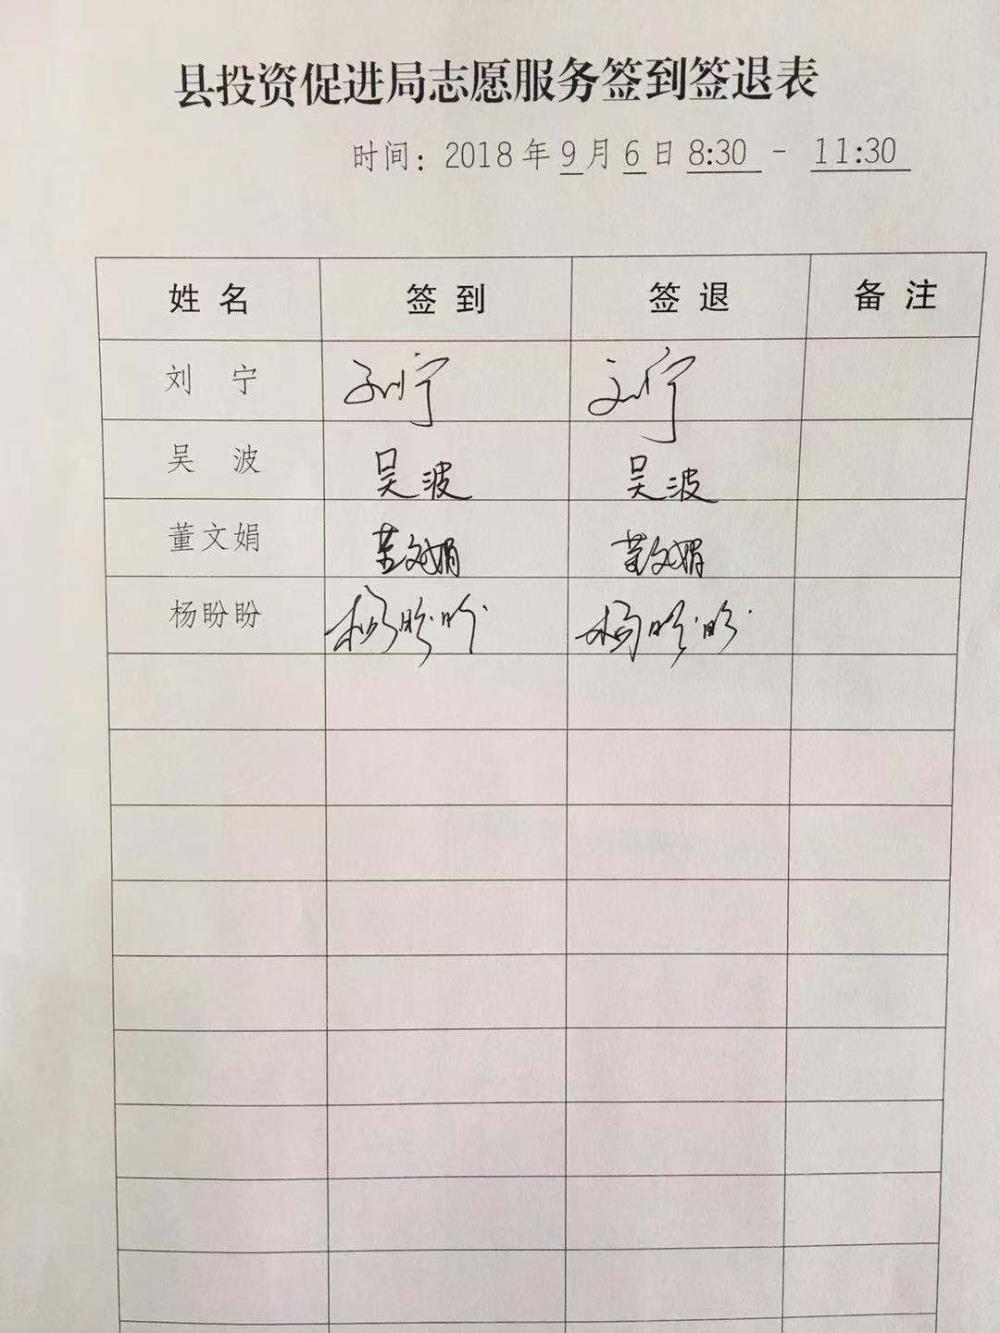 县投资促进局志愿服务签到签退表
时间：2018年9月6日8:30 - 11:30
姓名 签到 签退 备注
刘宁 刘宁 刘宁
吴波 吴波 吴波
董文娟 董文娟 董文娟
杨盼盼 杨盼盼 杨盼盼